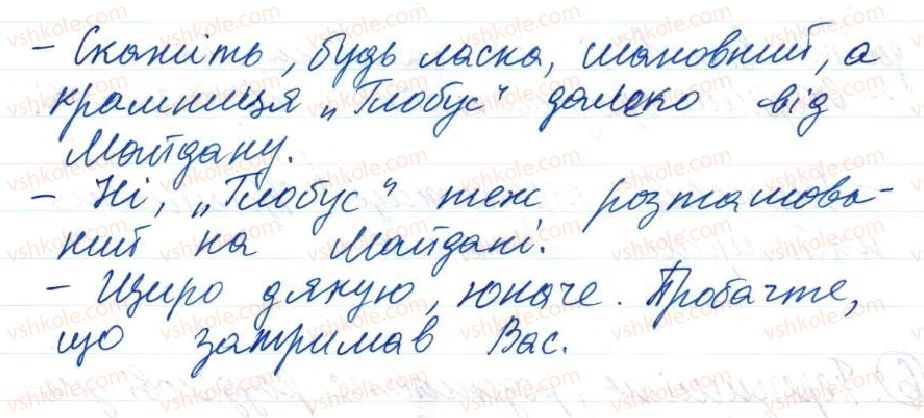 - Скажіть, будь ласка, шановний, а
крамниця „Глобус“ далеко від
Майдану.
- Ні, „Глобус“ теж розташова-
ний на Майдані.
- Щиро дякую, юначе. Пробачте,
що затримав Вас.